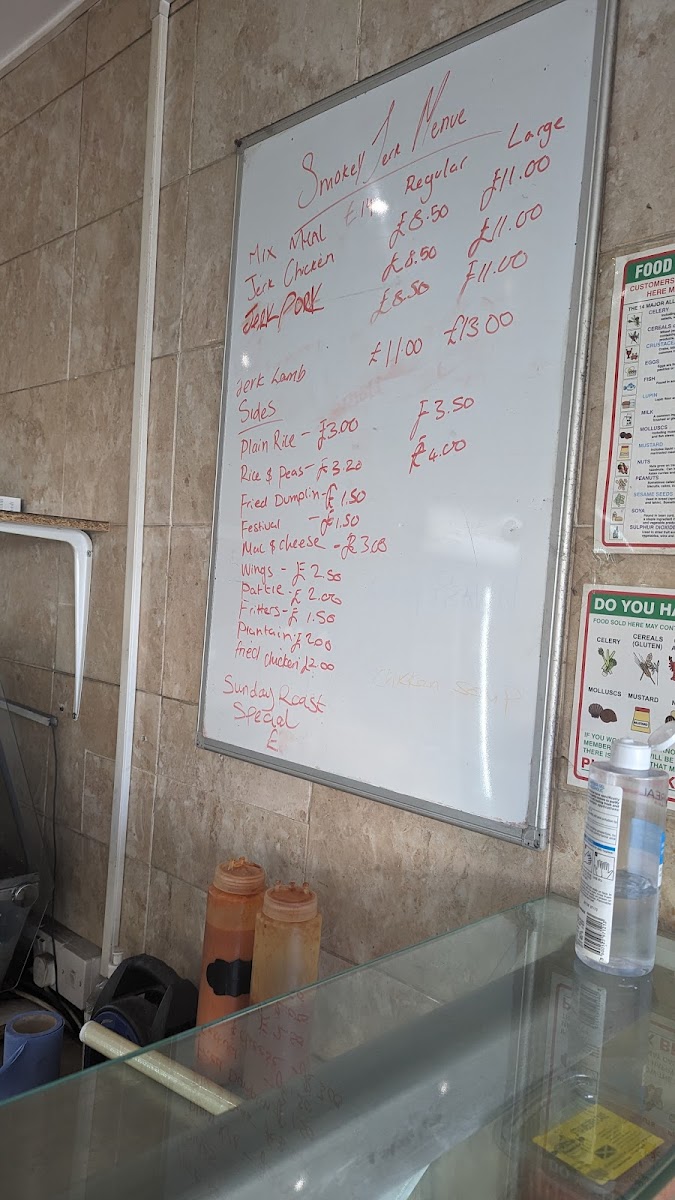 Smokey Jerk Menue
Regular Large
Mix Meal £14 £8.50 £11.00
Jerk Chicken £8.50 £11.00
Jerk Pork £8.50 £11.00
Jerk Lamb £11.00 £13.00
Sides
Plain Rice - £3.00 £3.50
Rice & Peas - £3.20 £4.00
Fried Dumplin - £1.50
Festival - £1.50
Mac & Cheese - £3.00
Wings - £2.50
Pattie - £2.00
Fritters - £1.50
Plantain £2.00
fried chicken £2.00
Sunday Roast
Special
£
chicken soup
FOOD
CUSTOMERS
HERE M
CELERY
CEREALS
EGGS
FISH
LUPIN
MILK
MOLLUSCS
MUSTARD
NUTS
PEANUTS
SESAME SEEDS
SOYA
SULPHUR DIOXIDE
DO YOU HA
FOOD SOLD HERE MAY CON
CELERY CEREALS
(GLUTEN)
MOLLUSCS MUSTARD
IF YOU WO
MEMBER
THERE IS